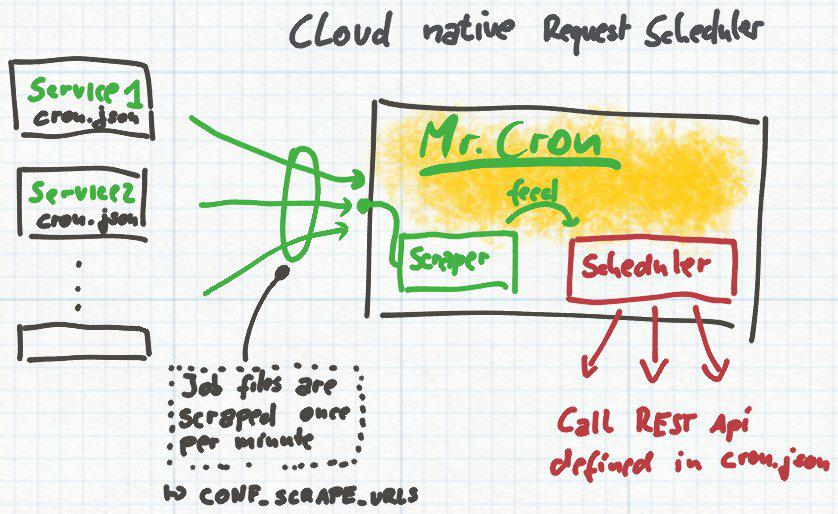 Cloud native Request Scheduler
Service1
cron.json
Service2
cron.json
Mr. Cron
feed
Scraper
Scheduler
Job files are
scraped once
per minute
CONF_SCRAPE_URLS
Call REST Api
defined in cron.json